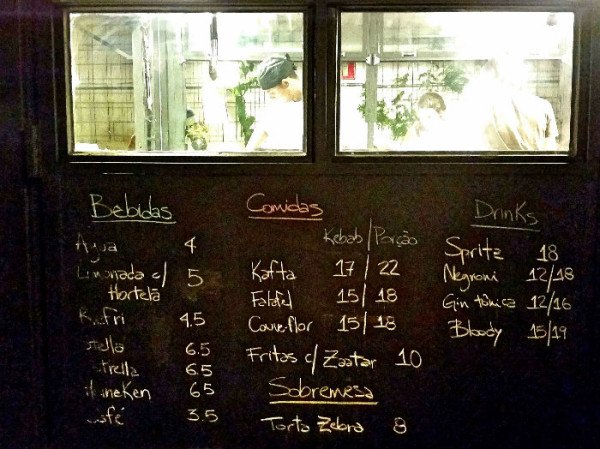 Bebidas
Água 4
Limonada c/ 5
Hortelã
Refri 4.5
Stella 6.5
Estrella 6.5
Heineken 6.5
Café 3.5
Comidas
Kebab/Porção
Kafta 17/22
Falafel 15/18
Couve-flor 15/18
Fritas c/ Zaatar 10
Sobremesa
Torta Zebra 8
Drinks
Spritz 18
Negroni 12/18
Gin tônica 12/16
Bloody 15/19